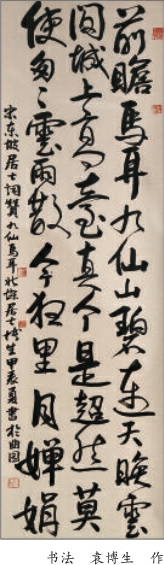 前瞻馬耳九仙山碧連天晚雲
間城上高臺真个是超然莫
使匆々雲雨散今夜里月嬋娟
宋東坡居士詞贊九仙馬耳 居士博生甲辰夏書於
书法 袁博生 作